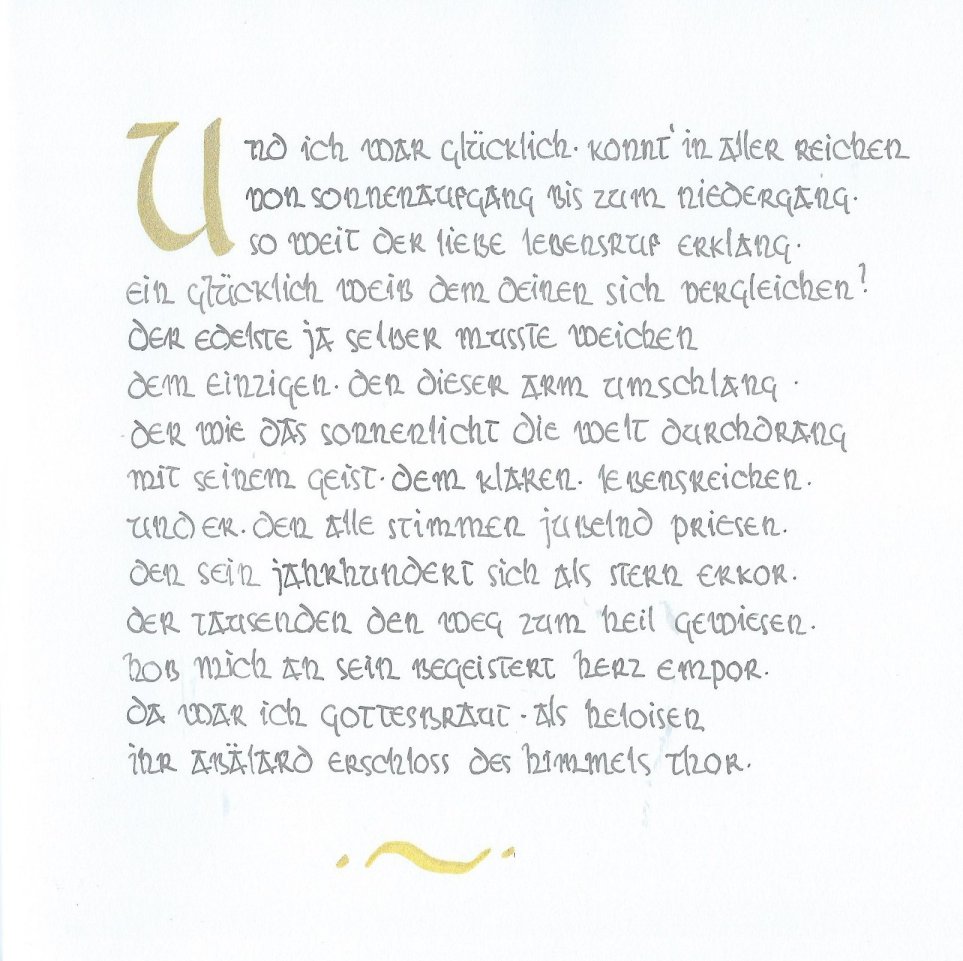 Und ich war glücklich. konnt' in aller reichen
von sonnenaufgang bis zum niedergang.
so weit der liebe lebensruf erklang.
ein glücklich weib dem deinen sich vergleichen?
der edelste ja selber musste weichen
dem einzigen. den dieser arm umschlang.
der wie das sonnenlicht die welt durchdrang
mit seinem geist. dem klaren. lebensreichen.
und er. den alle stimmen jubelnd priesen.
den sein jahrhundert sich als stern erkor.
der tausenden den weg zum heil gewiesen.
hob mich an sein begeistert herz empor.
da war ich gottesbraut. als heloisen
ihr abälard erschloss des himmels thor.